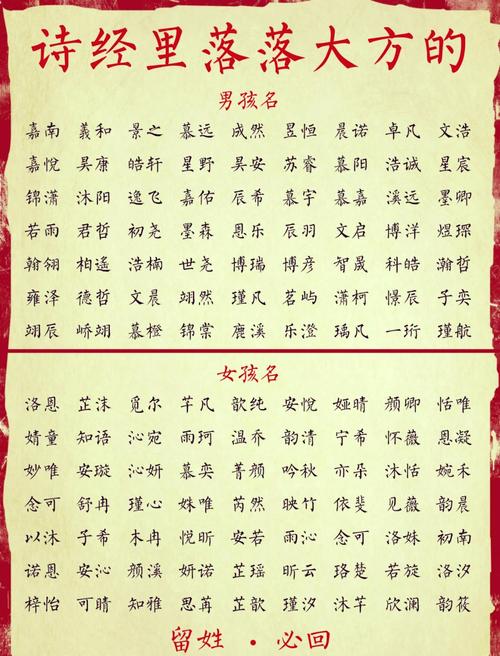 诗经里落落大方的
男孩名
嘉南 義和 景之 慕远 成然 昱恒 晨诺 卓凡 文浩
嘉悦 昊康 皓轩 星野 昊安 苏睿 慕阳 浩诚 星宸
锦潇 沐阳 逸飞 嘉佑 辰希 慕宇 慕嘉 溪远 墨卿
若雨 君哲 初尧 墨森 恩乐 辰羽 文启 博洋 煜琛
翰翎 柏遙 浩楠 世尧 博瑞 博彦 智晟 科皓 瀚哲
雍泽 德哲 文晨 翊然 瑾凡 茗屿 潇柯 憬辰 子奕
翊辰 峤翊 慕橙 锦棠 鹿溪 乐澄 瑀凡 一珩 瑾航
女孩名
洛恩 芷沫 觅尔 芊凡 歆纯 安悦 娅晴 颜卿 恬唯
婧童 知语 沁宛 雨珂 温乔 韵清 宁希 怀薇 恩凝
妙唯 安璇 沁妍 慕奕 菁颜 吟秋 亦朵 沐恬 婉禾
念可 舒冉 瑾心 姝唯 芮然 映竹 依斐 见薇 韵晨
以沐 子希 木冉 悦昕 安若 雨沁 念可 洛姝 初南
诺恩 安沁 颜溪 妍诺 芷瑶 昕云 珞楚 若旋 洛汐
梓怡 可晴 知雅 思苒 芷歆 瑾汐 沐芊 欣澜 韵筱
留姓 · 必回